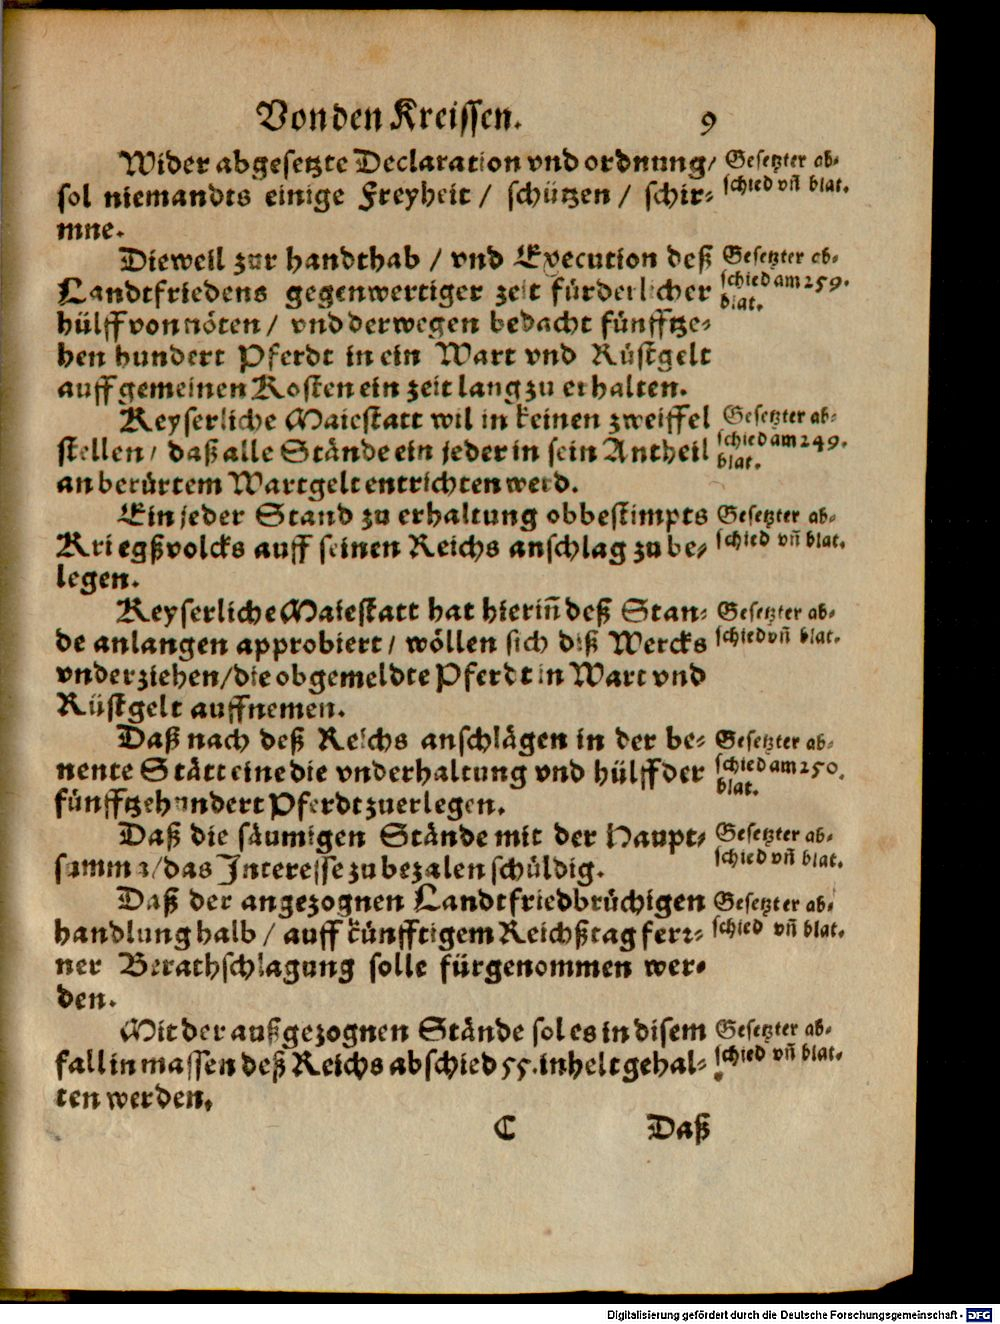 Von den Kreissen. 9
Wider abgesetzte Declaration vnd ordnung/
sol niemandts einige Freyheit / schützen / schir-
mne.
Gesetzter ab-
schied vñ blat.
Dieweil zur handthab / vnd Execution deß
Landtfriedens gegenwertiger zeit fürderlicher
hülff von nöten / vnd derwegen bedacht fünfftze-
hen hundert Pferdt in ein Wart vnd Rüstgelt
auff gemeinen Kosten ein zeit lang zu erhalten.
Gesetzter ab-
schied am 259.
blat.
Keyserliche Maiestatt wil in keinen zweiffel
stellen / daß alle Stände ein jeder in sein Antheil
an berürtem Wartgelt entrichten werd.
Gesetzter ab-
schied am 249.
blat.
Ein jeder Stand zu erhaltung obbestimpts
Kriegßvolcks auff seinen Reichs anschlag zu be-
legen.
Gesetzter ab-
schied vñ blat.
Keyserliche Maiestatt hat hieriñ deß Stan-
de anlangen approbiert / wöllen sich diß Wercks
vnderziehen/die obgemeldte Pferdt in Wart vnd
Rüstgelt auffnemen.
Gesetzter ab-
schied vñ blat.
Daß nach deß Reichs anschlägen in der be-
nente Stätt eine die vnderhaltung vnd hülff der
fünfftzehundert Pferdt zuerlegen.
Gesetzter ab-
schied am 250.
blat.
Daß die säumigen Stände mit der Haupt-
summa/das Interesse zubezalen schüldig.
Gesetzter ab-
schied vñ blat.
Daß der angezognen Landtfriedbrüchigen
handlung halb / auff künfftigem Reichßtag ferr-
ner Berathschlagung solle fürgenommen wer-
den.
Gesetzter ab-
schied vñ blat.
Mit der außgezognen Stände sol es in disem
fall in massen deß Reichs abschied 55. inhelt gehal-
ten werden.
Gesetzter ab-
schied vñ blat.
C Daß
Digitalisierung gefördert durch die Deutsche Forschungsgemeinschaft - DFG